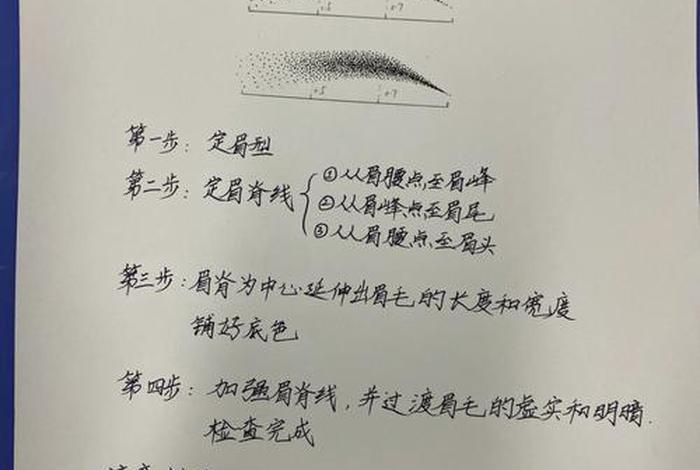 第一步：定眉型
第二步：定眉脊线
①从眉腰点至眉峰
②从眉峰点至眉尾
③从眉腰点至眉头
第三步：眉脊为中心延伸出眉毛的长度和宽度
铺好底色
第四步：加强眉脊线，并过渡眉毛的虚实和明暗.
检查完成